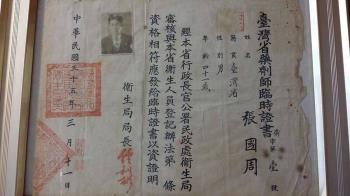 臺灣省藥劑師臨時證書
第壹號
姓名 張國周
籍貫 臺灣省
性別 男
年齡 四十一歲
經本省行政長官公署民政處衛生局
審核與本省衛生人員登記辦法第 條
資格相符應發給臨時證書以資證明
衛生局局長
中華民國三十五年三月十一日